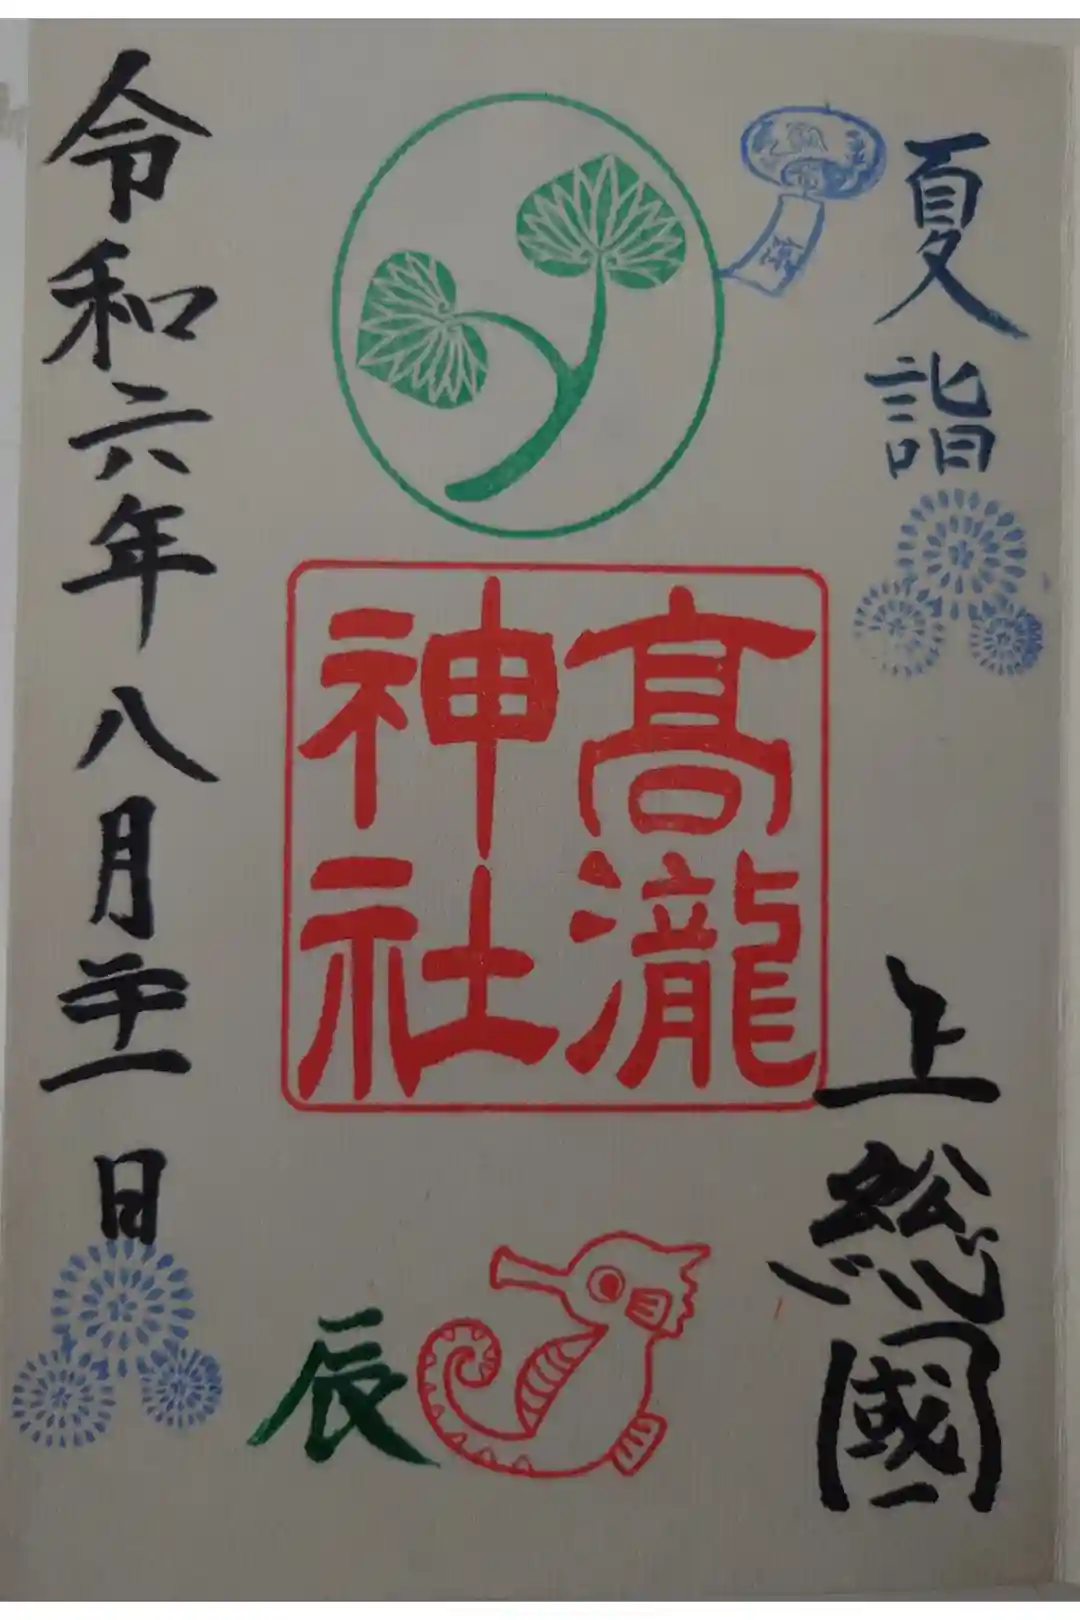 夏詣
上總國
髙瀧
神社
辰
令和六年八月二十一日